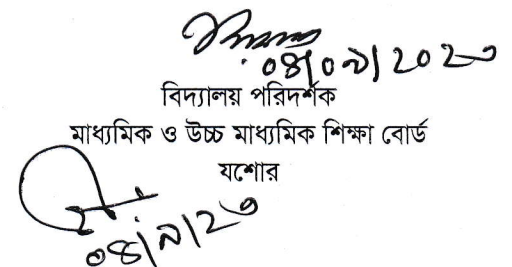 ০৪/০৯/২০২৩
বিদ্যালয় পরিদর্শক
মাধ্যমিক ও উচ্চ মাধ্যমিক শিক্ষা বোর্ড
যশোর
০৪/৯/২৩